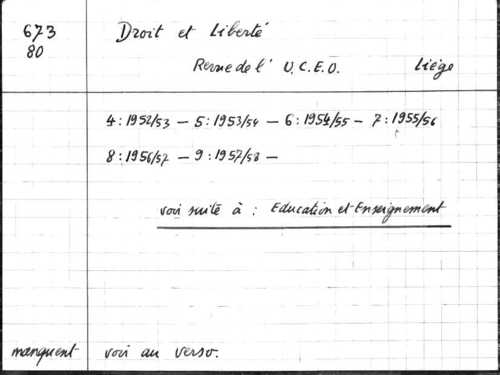 673
80
Droit et Liberté
Revue de l' U.C.E.O. Liége
4 : 1952/53 — 5 : 1953/54 — 6 : 1954/55 — 7 : 1955/56
8 : 1956/57 — 9 : 1957/58 —
voir suite à : Education et Enseignement
manquent voir au verso.